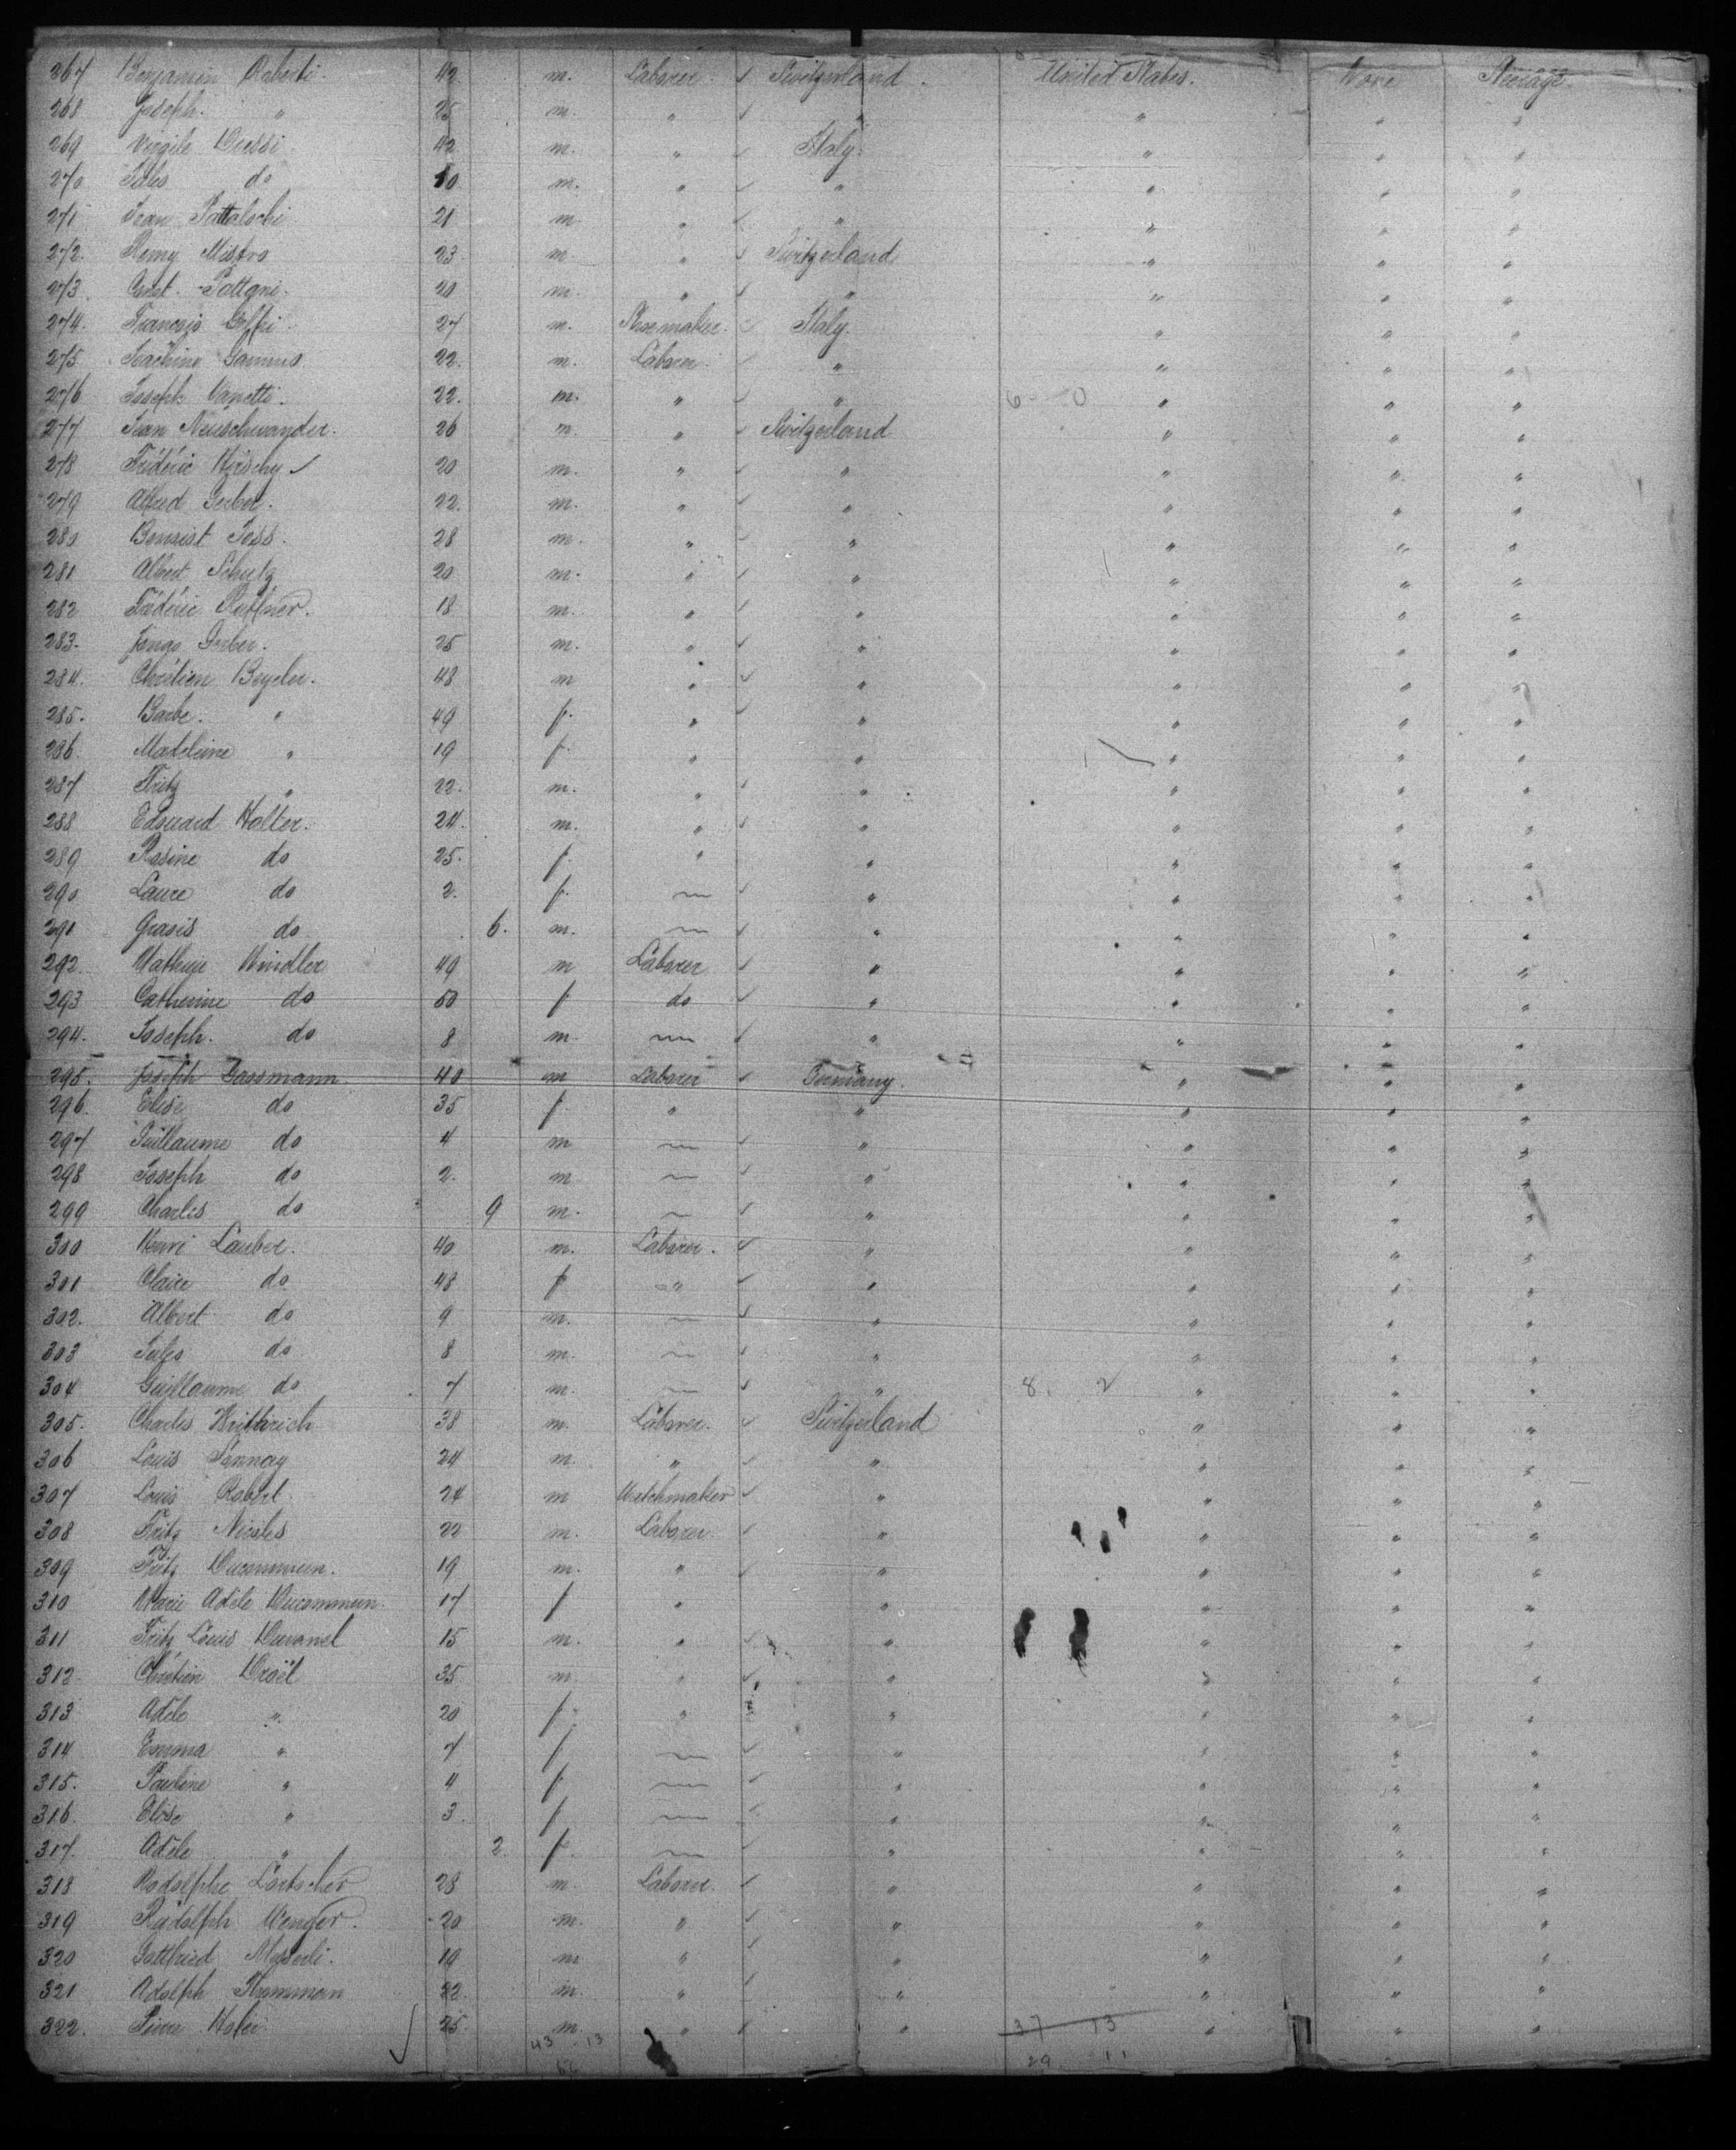 267 Benjamin Roberti. 42. m. Laborer. ✓ Switzerland. United States. None Steerage.
268 Joseph. " 25 m. " ✓ " " " "
269 Virgile 42 m. " ✓ Italy. " " "
270 Jules do 10. m. " ✓ " " " "
271 Jean 21 m " ✓ " " " "
272. Remy Mistro 23. m " ✓ Switzerland " " "
273. 20 m. " ✓ " " " "
274. François 27 m. Shoemaker. ✓ Italy. " " "
275. 22. m. Laborer. ✓ " " " "
276 Joseph Vanetti. 22. m. " ✓ " 6 - 0 " " "
277 Jean Neuschwander. 26 m. " ✓ Switzerland " " "
278 Frédéric Hirschy ✓ 20 m. " ✓ " " " "
279 Alfred Gerber. 22. m. " ✓ " " " "
280 Joss. 28 m. " ✓ " " " "
281 Albert Schulz 20 m. " ✓ " 1 " " "
282 Frédéric 18 m. " ✓ " " " "
283. Gerber. 25 m. " ✓ " " " "
284. Chrétien Beyeler. 48 m " ✓ " " " "
285. Barbe. " 49 f. " ✓ " " " "
286. Madeleine " 19 f. " " 1 " " "
287 Fritz " 22. m. " ✓ " " " "
288 Edouard Halter. 24. m. " ✓ " " " "
289 Rosine do 25. f. " " " " "
290 Laure do 2. f. — ✓ " " " "
291 do 6. m. — ✓ " " " "
292. Mathieu Kindler 49 m Laborer ✓ " " " "
293 Catherine do 50 f do ✓ " " " "
294. Joseph. do 8 m. — ✓ " " " "
295. Joseph Gassmann. 40 m Laborer ✓ Germany. " " "
296. Elise do 35 f " " " " "
297 Guillaume do 4 m — ✓ " " " "
298 Joseph do 2. m — ✓ " " " "
299 Charles do 9 m. — ✓ " " " "
300 Henri Lauber. 40 m. Laborer. ✓ " " " "
301 Claire do 48 f " ✓ " " " "
302. Albert do 9 m. — ✓ " " " "
303 Jules do 8 m. — ✓ " " " "
304 Guillaume do 7 m. — ✓ " 8. 2 " " "
305. Charles 38 m. Laborer. ✓ Switzerland " " "
306 Louis 24 m. " ✓ " " " "
307 Louis Robert 24 m Watchmaker ✓ " " " "
308 Fritz Nicoles 22 m. Laborer. ✓ " " " "
309 Fritz Ducommun. 19 m. " ✓ " " " "
310 Marie Adèle Ducommun. 17 f " " " " "
311 Fritz Louis Duvanel 15 m. " ✓ " " " "
312. Chrétien 35 m. " ✓ " " " "
313 Adèle " 20 f. " " " " "
314 Emma " 7 f — ✓ " " " "
315. Pauline " 4 f. — ✓ " " " "
316. Elise " 3. f — ✓ " " " "
317. Adèle " 2. f. — ✓ " " " "
318 Rodolphe Lörtscher 28 m. Laborer. ✓ " " " "
319 Rudolph Wenger. 20 m. " ✓ " " " "
320 Gottfried 19 m " ✓ " " " "
321 Adolph 22. m. " ✓ " " " "
322. Pierre Hofer. 25. m " ✓ " 37 13 " " "
43 13 29 11